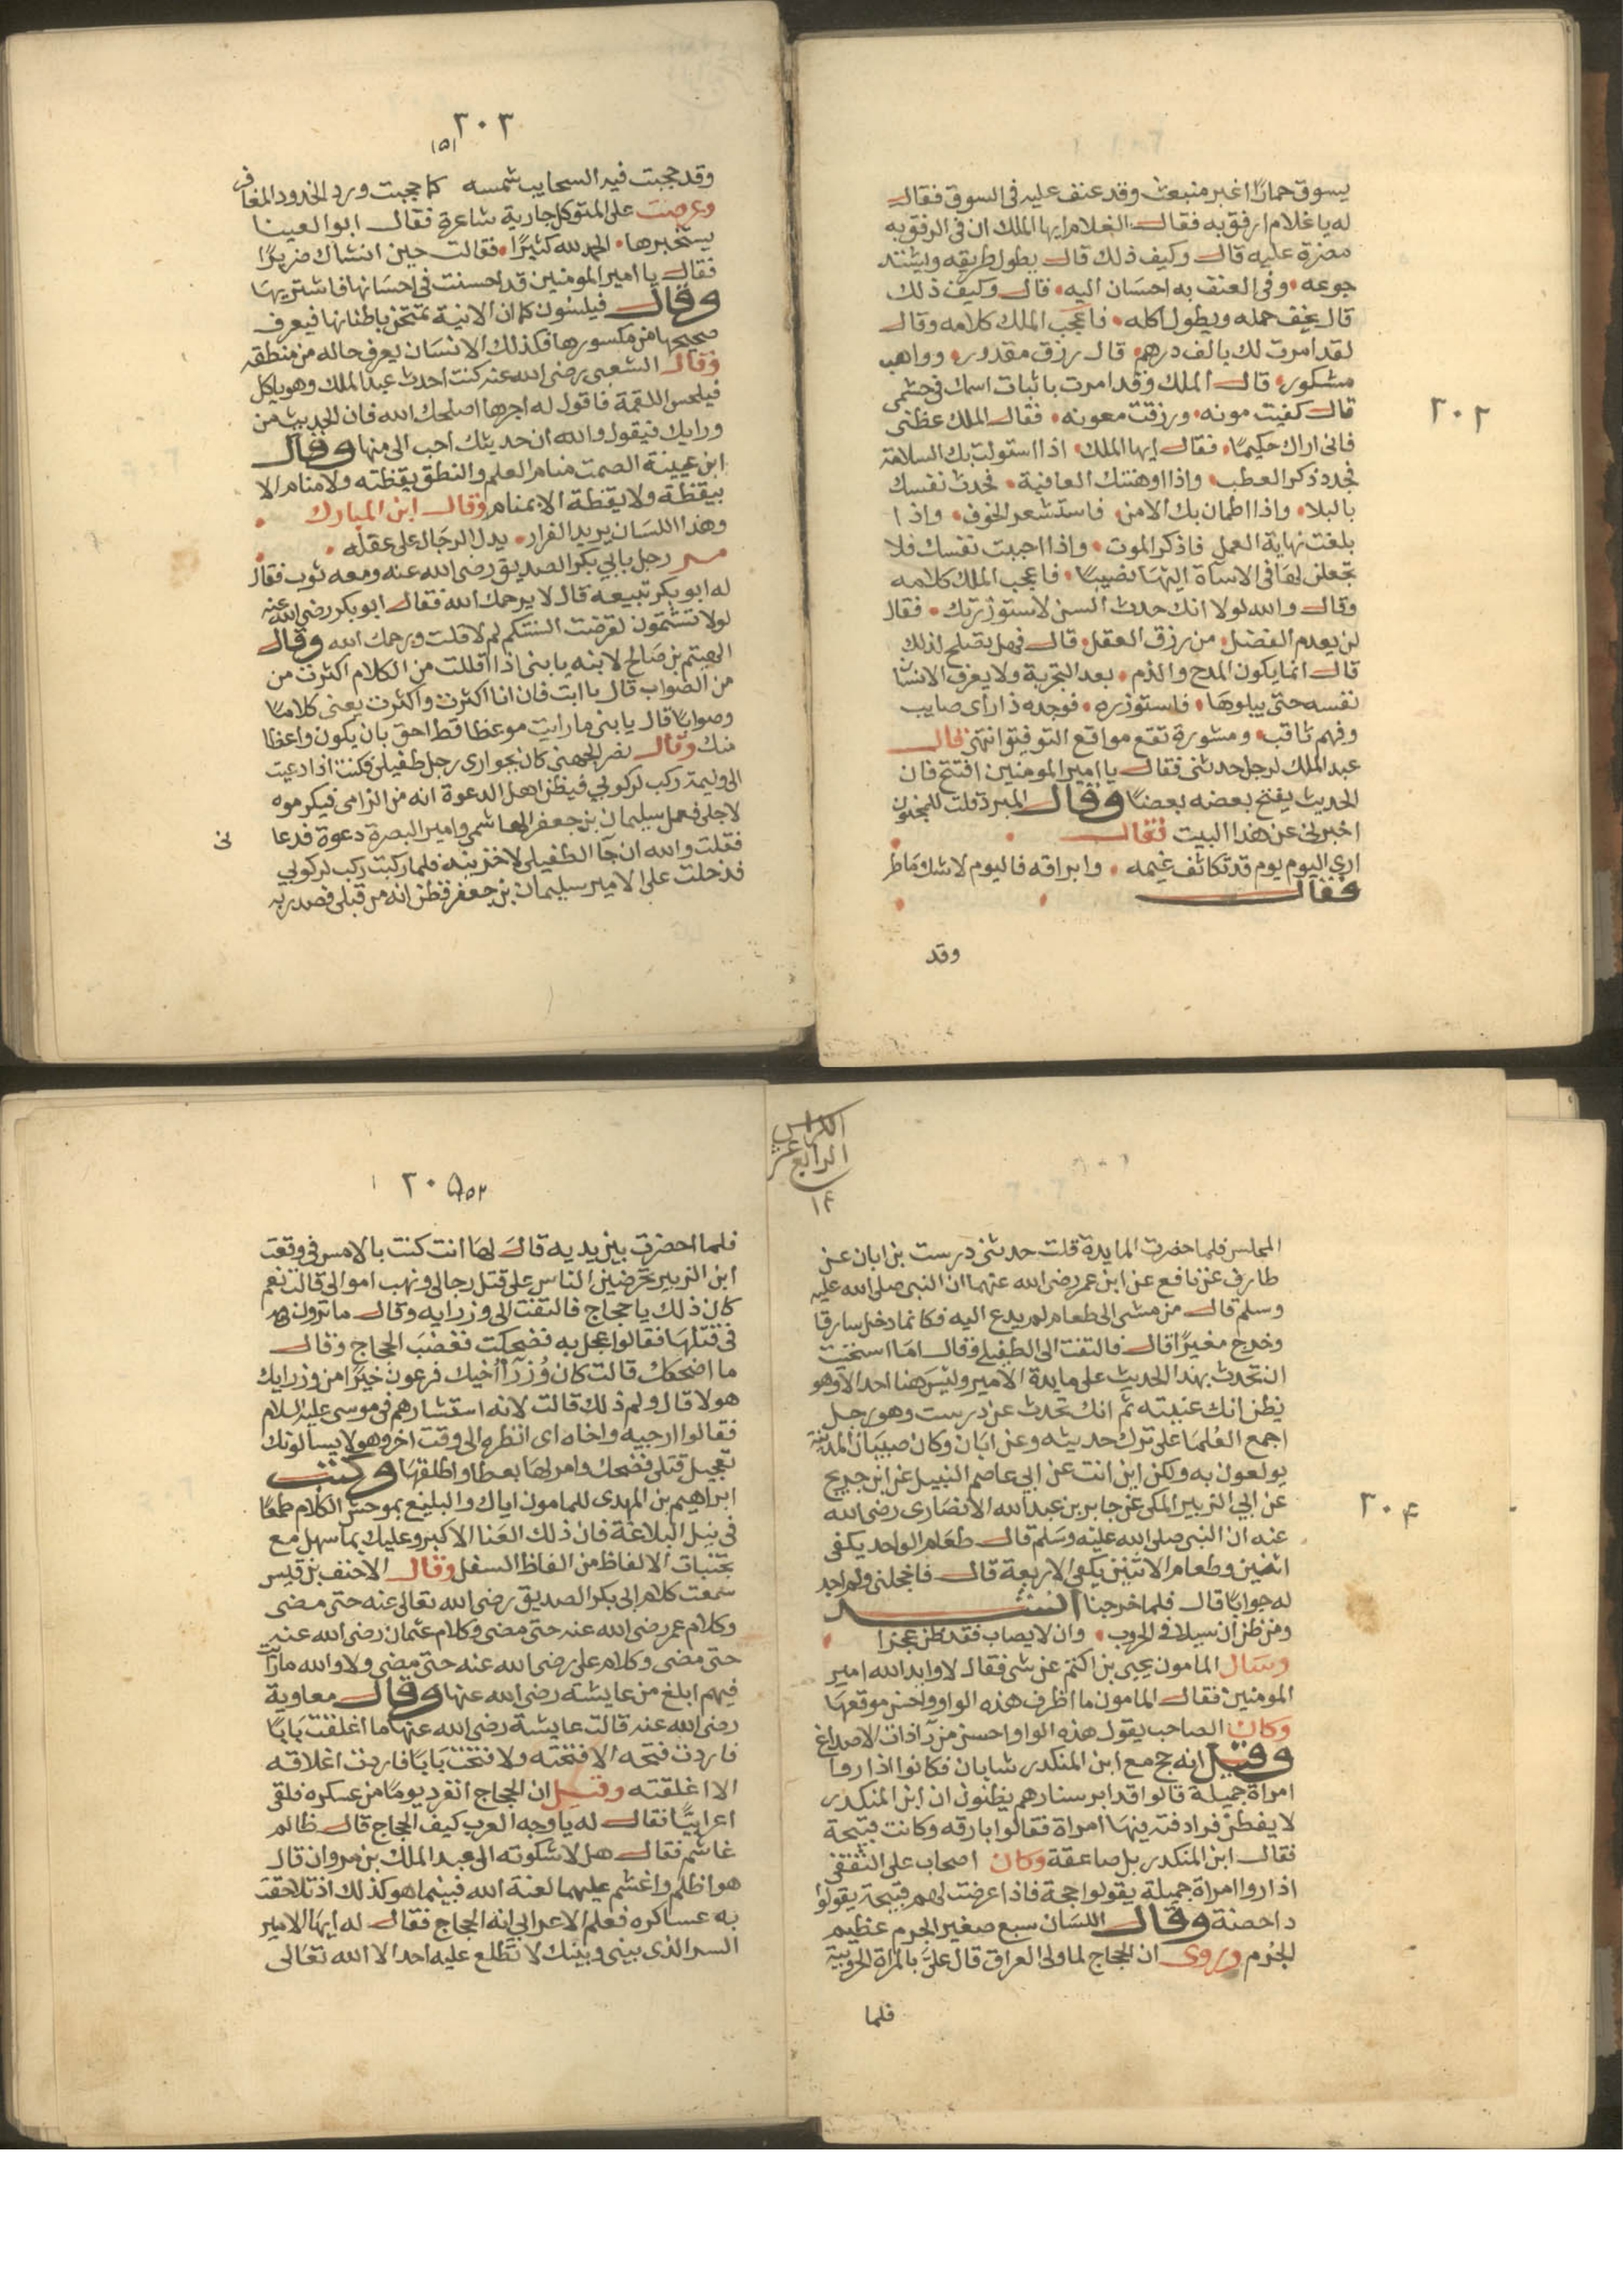 ٣٠٢
يسوق حمارًا غير منبعث وقد عنف عليه في السوق فقال
له يا غلام ارفق به فقال الغلام ايها الملك ان في الرفق به
مضرة عليه قال وكيف ذلك قال يطول طريقه ويشتد
جوعه وفي العنف به احسان اليه قال وكيف ذلك
قال يخف حمله ويطول اكله فاعجب الملك كلامه وقال
لقد امرت لك بالف درهم قال رزق مقدور وواهب
مشكور قال الملك وقد امرت باثبات اسمك في حشمي
قال كفيت مونه ورزقت معونه فقال الملك عظني
فاني اراك حكيمًا فقال ايها الملك اذا استولت بك السلامة
فجدد ذكر العطب واذا اوهنتك العافية فحدث نفسك
بالبلا واذا اطمان بك الامن فاستشعر الخوف واذا
بلغت نهاية العمل فاذكر الموت واذا احببت نفسك فلا
تجعلن لها في الاسآة اليها نصيبًا فاعجب الملك كلامه
وقال والله لولا انك حدث السن لاستوزرتك فقال
لن يعدم الفضل من رزق العقل قال فهل تصلح لذلك
قال انما يكون المدح والذم بعد التجربة ولا يعرف الانسان
نفسه حتى يبلوها فاستوزره فوجده ذا راى صايب
وفهم ثاقب ومشورة تقع مواقع التوفيق انتهى قال
عبد الملك لرجل حدثني فقال يا امير المومنين افتتح فان
الحديث يفتح بعضه بعضًا وقال المبرد قلت للمجنون
اخبرني عن هذا البيت فقال
ارى اليوم يوم قد تكاثف غيمه وابراقه فاليوم لا شك ماطر
فقال
وقد
٣٠٣
١٥١
وقد حجبت فيه السحايب شمسه كما حجبت ورد الخدود المعافر
وعرضت على المتوكل جارية شاعرة فقال ابو العينا
يستخبرها الحمد لله كثيرًا فقالت حين انشاك ضريرًا
فقال يا امير المومنين قد احسنت في احسانها فاشتريها
وقال فيلسون كما ان الانية تمتحن باطنانها فيعرف
صحيحها من مكسورها فكذلك الانسان يعرف حاله من منطقه
وقال الشعبي رضي الله عنه كنت احدث عبد الملك وهو ياكل
فيلحس اللقمة فاقول له اجرها اصلحك الله فان الحديث من
ورايك فيقول والله ان حديثك احب الى منها وقال
ابن عيينة الصمت منام العلم والنطق يقظته ولا منام الا
بيقظة ولا يقظة الا بمنام وقال ابن المبارك
وهذا اللسان يريد الفرار يدل الرجال على عقله
مر رجل بابي بكر الصديق رضي الله عنه ومعه ثوب فقال
له ابو بكر تبيعه قال لا يرحمك الله فقال ابو بكر رضي الله عنه
لولا تشتمون لقرضت السنتكم لم لا قلت ويرحمك الله وقال
الهيتم بن صالح لابنه يا بني اذا اقللت من الكلام اكثرت من
من الصواب قال يا ابت فان انا اكثرت واكثرت يعني كلامًا
وصوابًا قال يا بني ما رايت موعظا قط احق بان يكون واعظا
منك وقال نصر الجهضي كان بجواري رجل طفيلي فكنت اذا دعيت
الى وليمة ركب لركوبي فيظن اهل الدعوة انه من الزامى فيكرموه
لاجلى فعمل سليمان بن جعفر الهاشمي امير البصرة دعوة فدعا
نى
فقلت والله ان جآ الطفيلي لاخزينه فلما ركبت ركب لركوبي
فدخلت على الامير سليمان بن جعفر فظن انه من قبلى فصدر به
الكراس
الرابع عشر
١٤
٣٠٤
المجلس فلما حضرت المايدة قلت حدثني درست بن ابان عن
طارق عن نافع عن ابن عمر رضي الله عنهما ان النبي صلى الله عليه
وسلم قال من مشى الى طعام لم يدع اليه فكانما دخل سارقا
وخرج مغيرًا قال فالتفت الى الطفيلى وقال اما استحيت
ان تحدث بهذا الحديث على مايدة الامير وليس هنا احد الا وهو
يظن انك عنيته ثم انك تحدث عن درست وهو رجل
اجمع العلما على ترك حديثه وعن ابان وكان صبيان المدينة
يولعون به ولكن اين انت عن ابي عاصم النبيل عن ابن جريج
عن ابي الزبير المكى عن جابر بن عبد الله الانصارى رضي الله
عنه ان النبي صلى الله عليه وسلم قال طعام الواحد يكفى
اثنين وطعام الاثنين يكفى الاربعة قال فاخجلنى ولم اجد
له جوابًا قال فلما خرجنا انشد
ومن ظن ان سيلا فى الحروب وان لا يصاب فقد ظن عجزا
وسال المامون يحيى بن اكثم عن شى فقال لا وايد الله امير
المومنين فقال المامون ما اظرف هذه الواو واحسن موقعها
وكان الصاحب يقول هذه الواو احسن من آذات الاصداغ
وقيل انه حج مع ابن المنكدر شابان فكانوا اذا روا
امراة جميلة قالوا قد ابرستنا وهم يظنون ان ابن المنكدر
لا يفطن فراد فته فيها امراة فقالوا بارقه وكانت قبيحة
فقال ابن المنكدر بل صاعقة وكان اصحاب على الثقفى
اذا روا امراة جميلة يقولوا حجة فاذا عرضت لهم قبيحة يقولوا
داحضة وقال اللسان سبع صغير الجرم عظيم
الجرم وروى ان الحجاج لما ولى العراق قال علىّ بالمراة الحروبية
فلما
٢٠٥
١٥٢
فلما احضرت بين يديه قال لها انت كنت بالامس فى وقعت
ابن الزبير تحرضين الناس على قتل رجالى ونهب اموالى قالت نعم
كان ذلك يا حجاج فالتفت الى وزرايه وقال ما ترون
فى قتلها فقالوا عجل به فضحكت فغضب الحجاج وقال
ما اضحكك قالت كان وزرآ أخيك فرعون خيرًا من وزرايك
هولا قال ولم ذلك قالت لانه استشارهم فى موسى عليه السلام
فقالوا ارجيه واخاه اى انظره الى وقت اخر وهولا يسالونك
تعجيل قتلى فضحك وامر لها بعطا واطلقها وكتب
ابراهيم بن المهدى للمامون اياك والبليغ بموحش الكلام طمعًا
فى نيل البلاغة فان ذلك العنا الاكبر وعليك بما سهل مع
تجنبات الالفاظ من الفاظ السفل وقال الاحنف بن قيس
سمعت كلام ابى بكر الصديق رضي الله تعالى عنه حتى مضى
وكلام عمر رضي الله عنه حتى مضى وكلام عثمان رضي الله عنه
حتى مضى وكلام على رضي الله عنه حتى مضى ولا والله ما رايت
فيهم ابلغ من عايشة رضي الله عنها وقال معاوية
رضي الله عنه قالت عايشة رضي الله عنها ما اغلقت بابًا
فاردت فتحه الا فتحته ولا فتحت بابًا فاردت اغلاقه
الا اغلقته وقيل ان الحجاج انفرد يومًا من عسكره فلقى
اعرابيًا فقال له يا وجه العرب كيف الحجاج قال ظالم
غاشم فقال هل لا شكوته الى عبد الملك بن مروان قال
هو اظلم واغشم عليهما لعنة الله فبينما هو كذلك اذ تلاحقت
به عساكره فعلم الاعرابى انه الحجاج فقال له ايها الامير
السر الذى بينى وبينك لا تطلع عليه احد الا الله تعالى